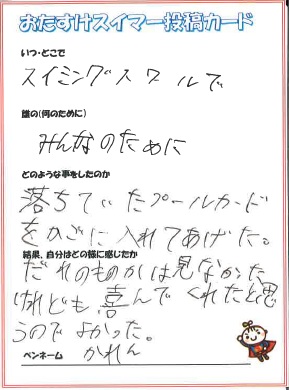 おたすけスイマー投稿カード
いつ・どこで
スイミングスクールで
誰の(何のために)
みんなのために
どのような事をしたのか
落ちていたプールカード
をかごに入れてあげた。
結果、自分はどの様に感じたか
だれのものかは見なかった
けれども喜んでくれたと思
うのでよかった。
ペンネーム かれん